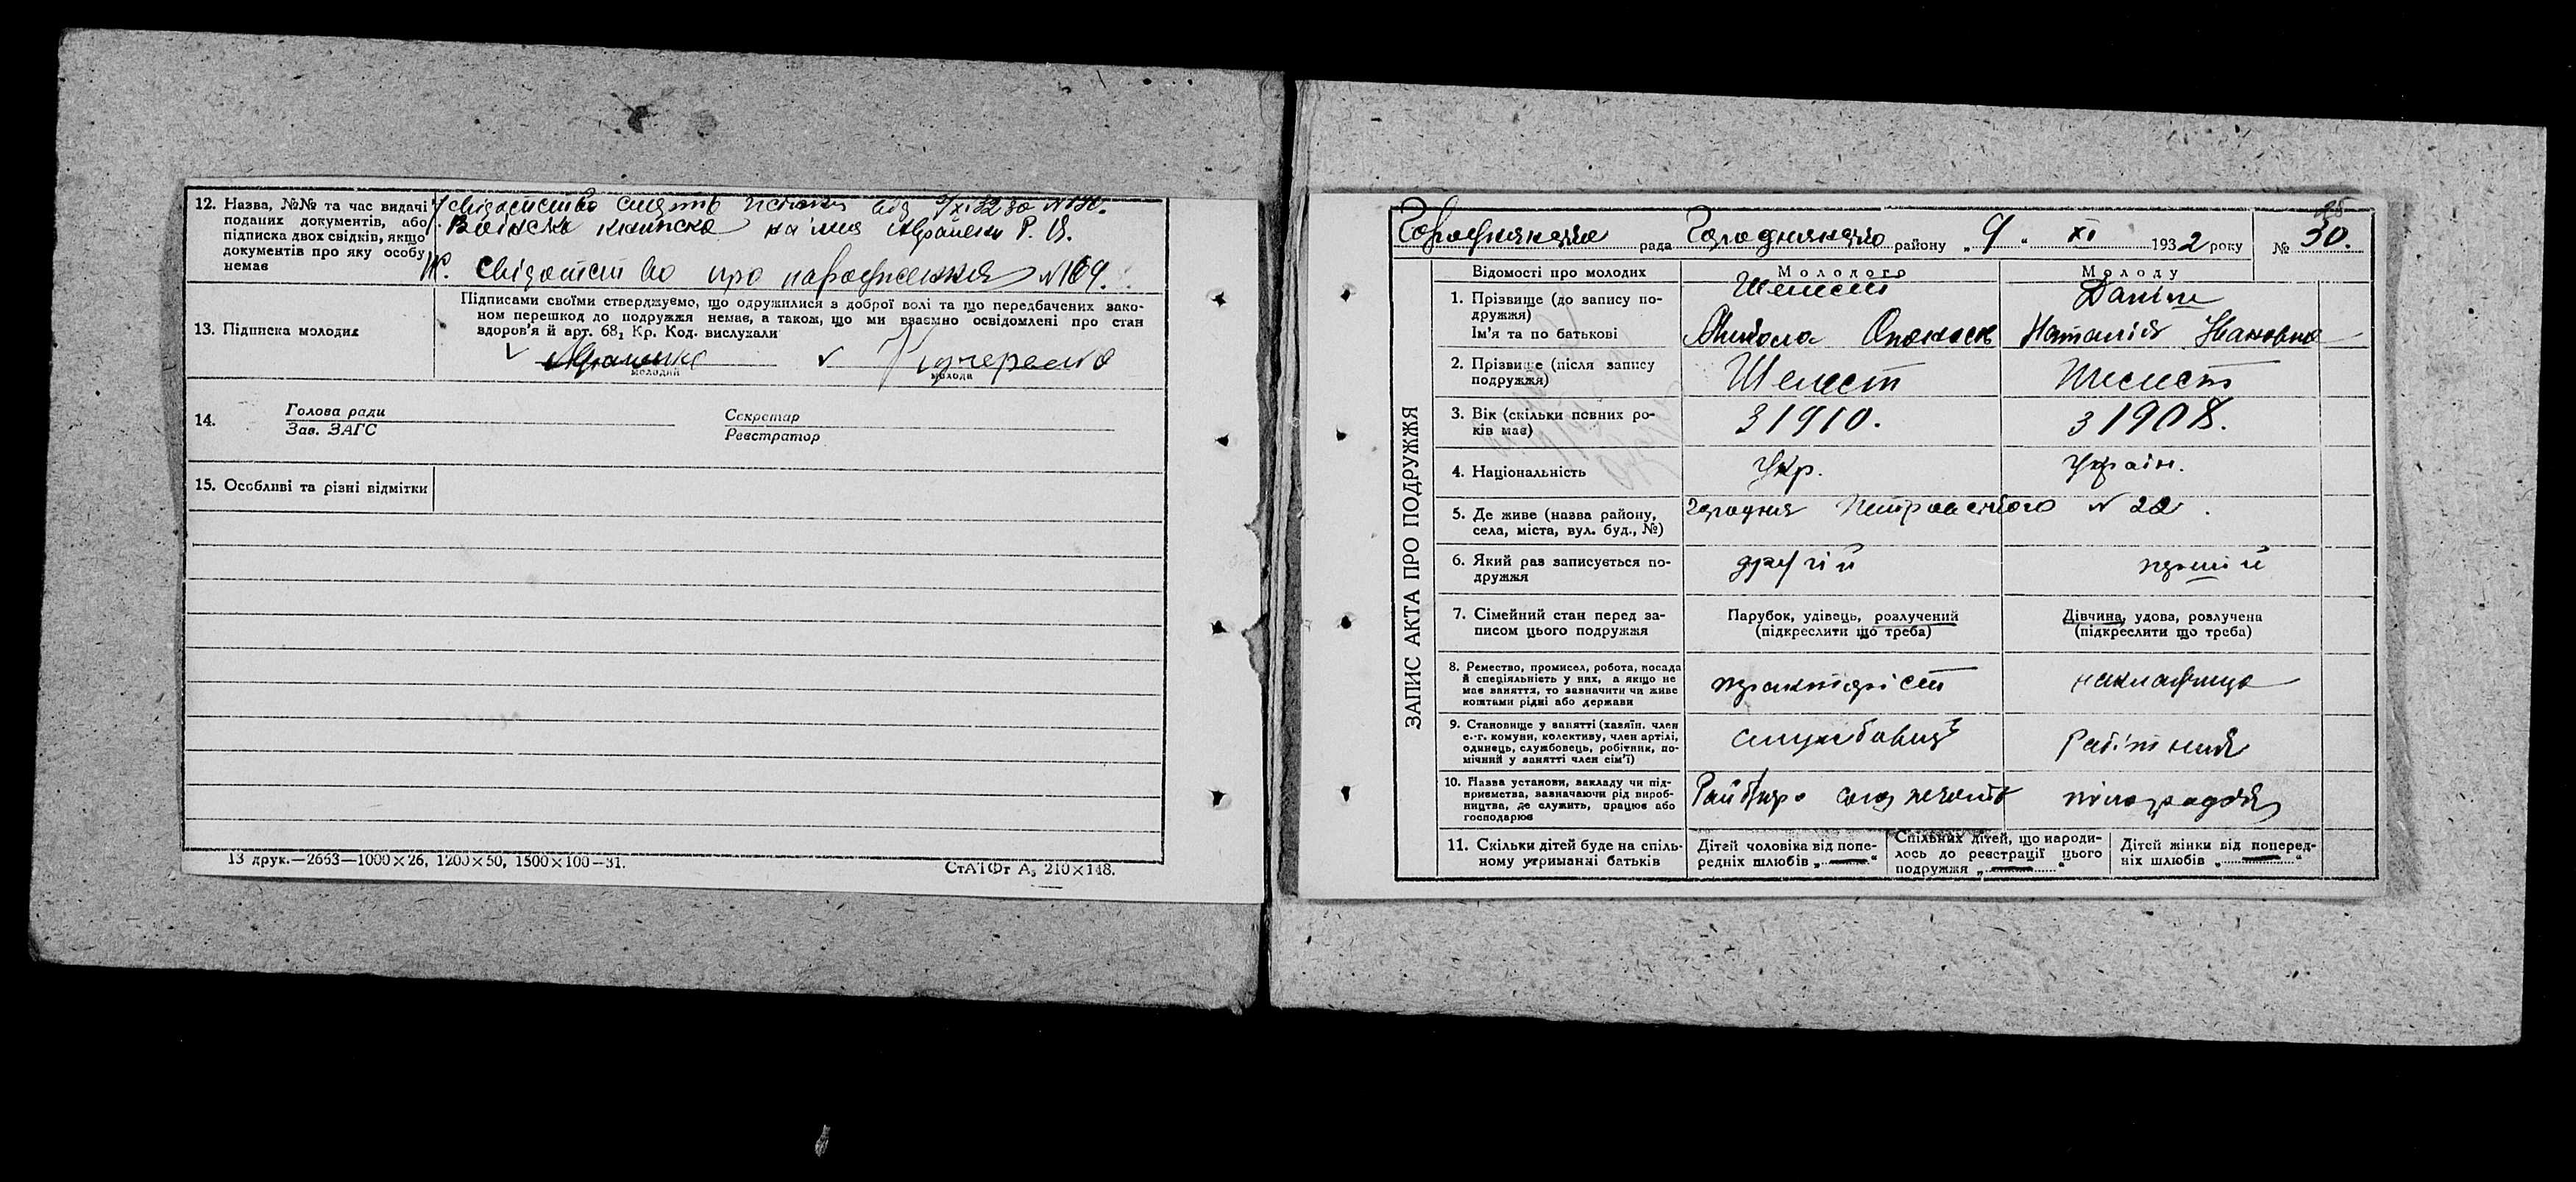 12. Назва, №№ та час видачі
поданих документів, або
підписка двох свідків, якщо
документів про яку особу
немає
від 9/XI 32 за №190.
Війська книжка на імя Абраменко Р. В.
свідотство про народження №169.
13. Підписка молодих
Підписами своїми стверджуємо, що одружилися з доброї волі та що передбачених зако-
ном перешкод до подружжя немає, а також, що ми взаємно освідомлені про стан
здоров'я й арт. 68, Кр. Код. вислухали
молодий
молода
14.
Голова ради
Зав. ЗАГС
Секретар
Реєстратор
15. Особливі та різні відмітки
13 друк.—2663—1000×26, 1200×50, 1500×100—31.
СтАТФт А₅ 210×148.
ЗАПИС АКТА ПРО ПОДРУЖЖЯ
Городнянська рада Городнянсько району „ 9 “ XI 1932 року № 30.
Відомості про молодих
Молодого
Молоду
1. Прізвище (до запису по-
дружжя)
Ім'я та по батькові
Шелест
Микола Опанасов
Наталія Івановна
2. Прізвище (після запису
подружжя)
Шелест
Шелест
3. Вік (скільки повних ро-
ків має)
з 1910.
з 1908.
4. Національність
Укр.
Україн.
5. Де живе (назва району,
села, міста, вул. буд., №)
Городня Петровського № 22.
6. Який раз записується по-
дружжя
другій
перший
7. Сімейний стан перед за-
писом цього подружжя
Парубок, удівець, розлучений
(підкреслити що треба)
Дівчина, удова, розлучена
(підкреслити що треба)
8. Ремество, промисел, робота, посада
й спеціяльність у них, а якщо не
має заняття, то зазначити чи живе
коштами рідні або держави
накладчица
9. Становище у занятті (хазяїн, член
с.-г. комуни, колективу, член артілі,
одинець, службовець, робітник, по-
мічний у занятті член сім'ї)
службовець
Робітниця
10. Назва установи, закладу чи під-
приємства, зазначаючи рід вироб-
ництва, де служить, працює або
господарює
Райбюро
11. Скільки дітей буде на спіль-
ному утриманні батьків
Дітей чоловіка від попе-
редніх шлюбів „ — “
Спільних дітей, що народи-
лось до реєстрації цього
подружжя „ — “
Дітей жінки від поперед-
ніх шлюбів „ — “